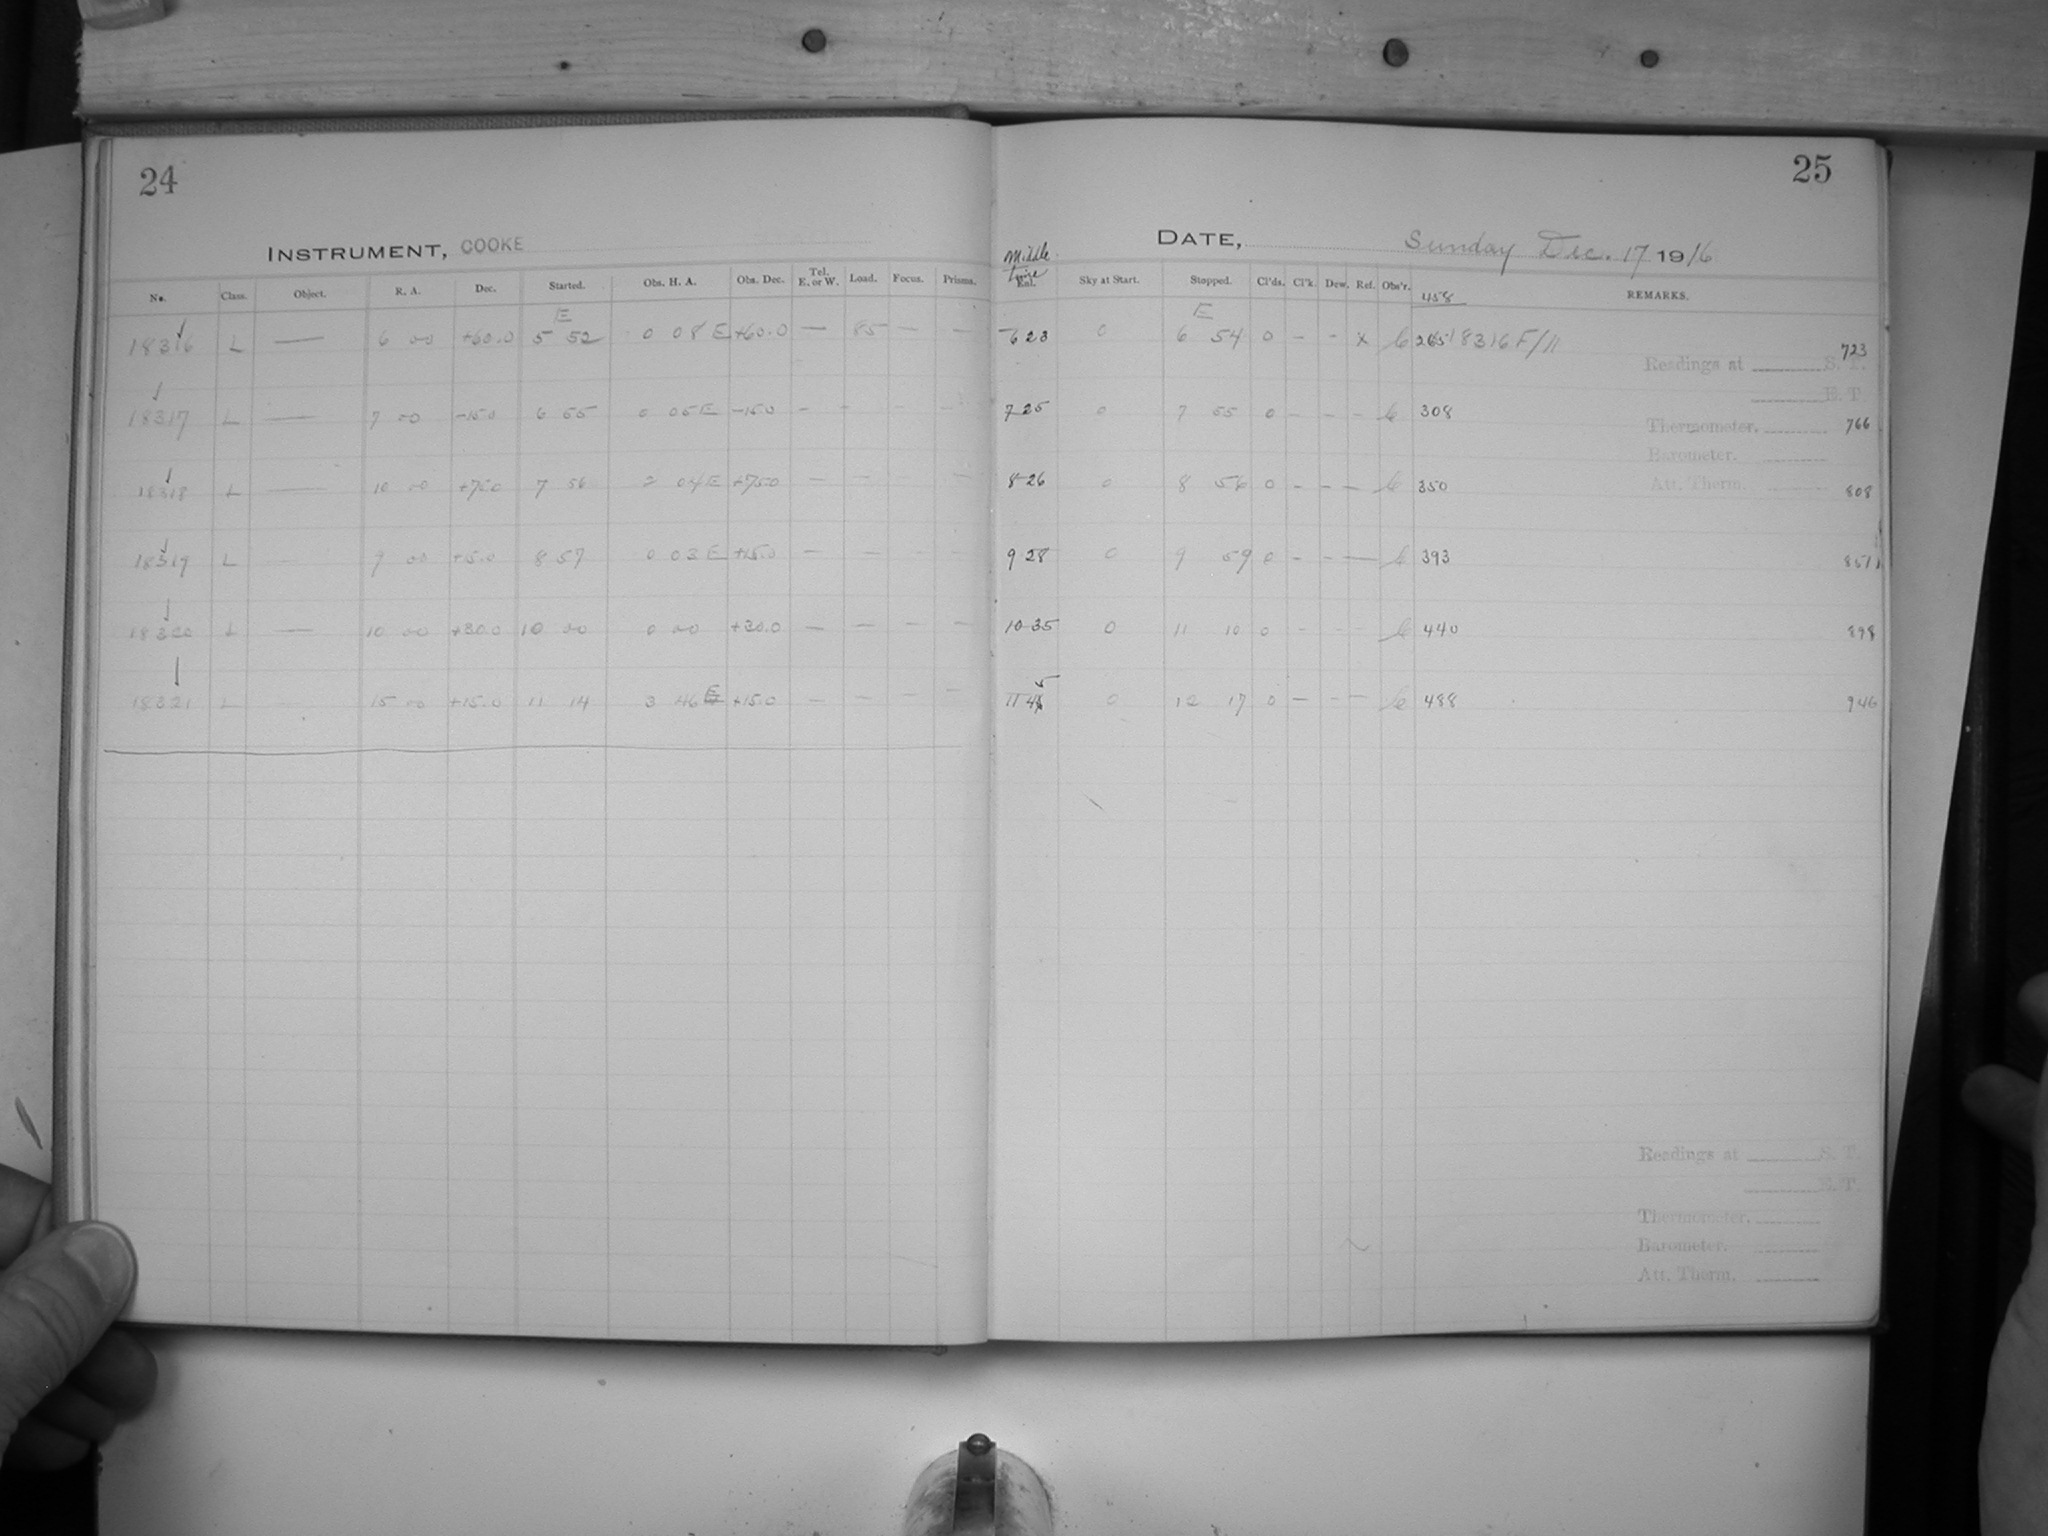 24
INSTRUMENT, COOKE
No. Class. Object. R. A. Dec. Started. Obs. H. A. Obs. Dec. Tel. E. or W. Load. Focus. Prisms.
E
18316 L — 6 00 +60.0 5 52 0 08 E +60.0 — 85 — —
18317 L — 7 00 -15.0 6 55 0 05 E -15.0 - - - -
18318 L — 10 00 +75.0 7 56 2 04 E +75.0 — — —
18319 L — 9 00 +15.0 8 57 0 03 E +15.0 — — — —
18320 L — 10 00 +30.0 10 00 0 00 +30.0 — — — —
18321 L — 15 00 +15.0 11 14 3 46 E +15.0 — — — —
25
DATE, Sunday Dec. 17 1916
Middle time
Enl. Sky at Start. Stopped. Cl'ds. Cl'k. Dew. Ref. Obs'r. 458 REMARKS.
E
6 23 0 6 54 0 - - x 265 18316 F/11 723
Readings at S. T.
E. T.
7 25 0 7 55 0 - - - 308 766
Thermometer.
Barometer.
8 26 0 8 56 0 - - — 350 808
Att. Therm.
9 28 0 9 59 0 - - — 393 851
10 35 0 11 10 0 - - - 440 898
11 45 0 12 17 0 — - — 488 946
Readings at S. T.
E. T.
Thermometer.
Barometer.
Att. Therm.